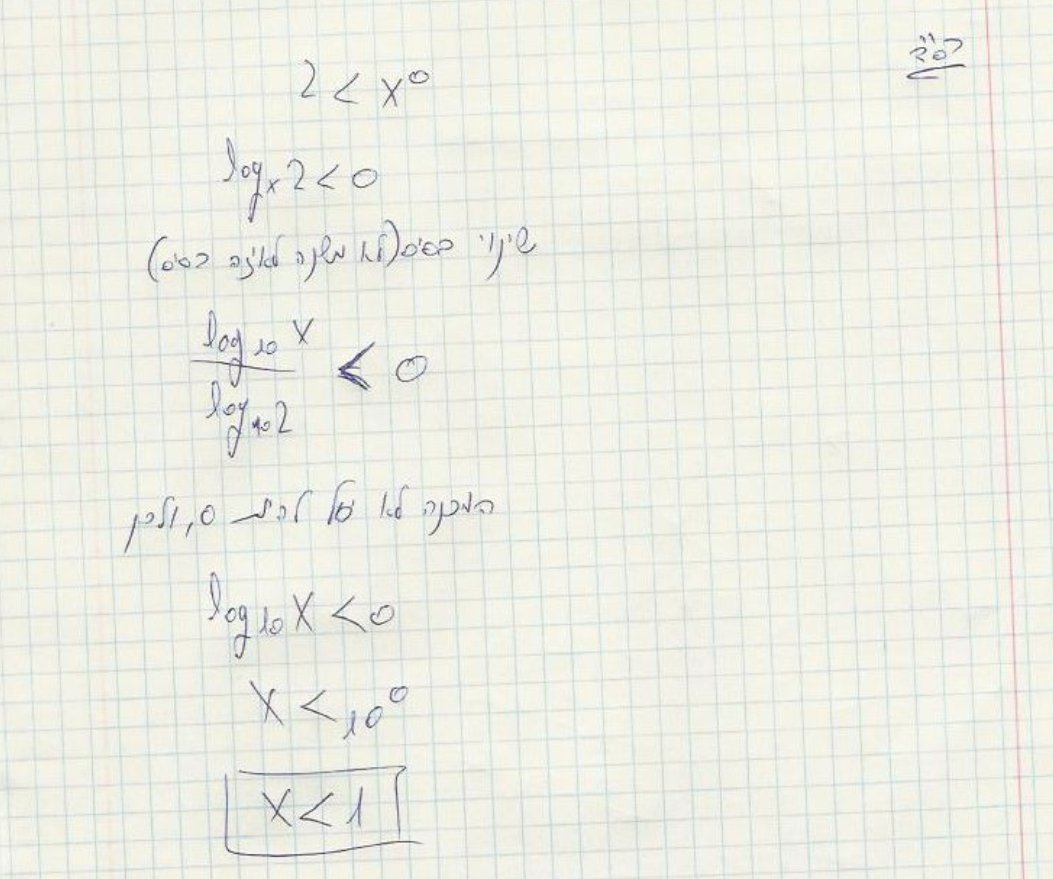 בס"ד
2 < x⁰
logₓ2 < 0
שינוי בסיס (לא משנה לאיזה בסיס)
log₁₀x / log₁₀2 < 0
המכנה לא יכול להיות 0, ולכן
log₁₀x < 0
x < 10⁰
x < 1